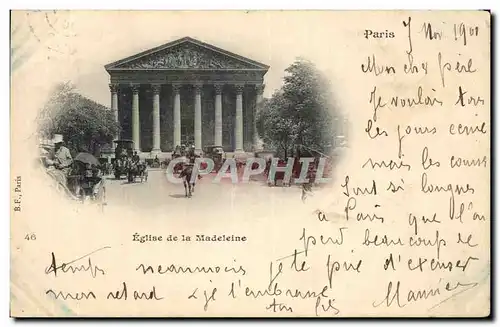 Paris
7 Nov 1901
Mon cher père
Je voulais tos
les jours ecrire
mais les cours
sont si longues
a Paris que l'on
perd beaucoup de
temps neanmois je te prie d'excuser
mon retard & je t'embrasse
ton fils
Maurice
CPRPHOTO
Église de la Madeleine
46
B.F., Paris